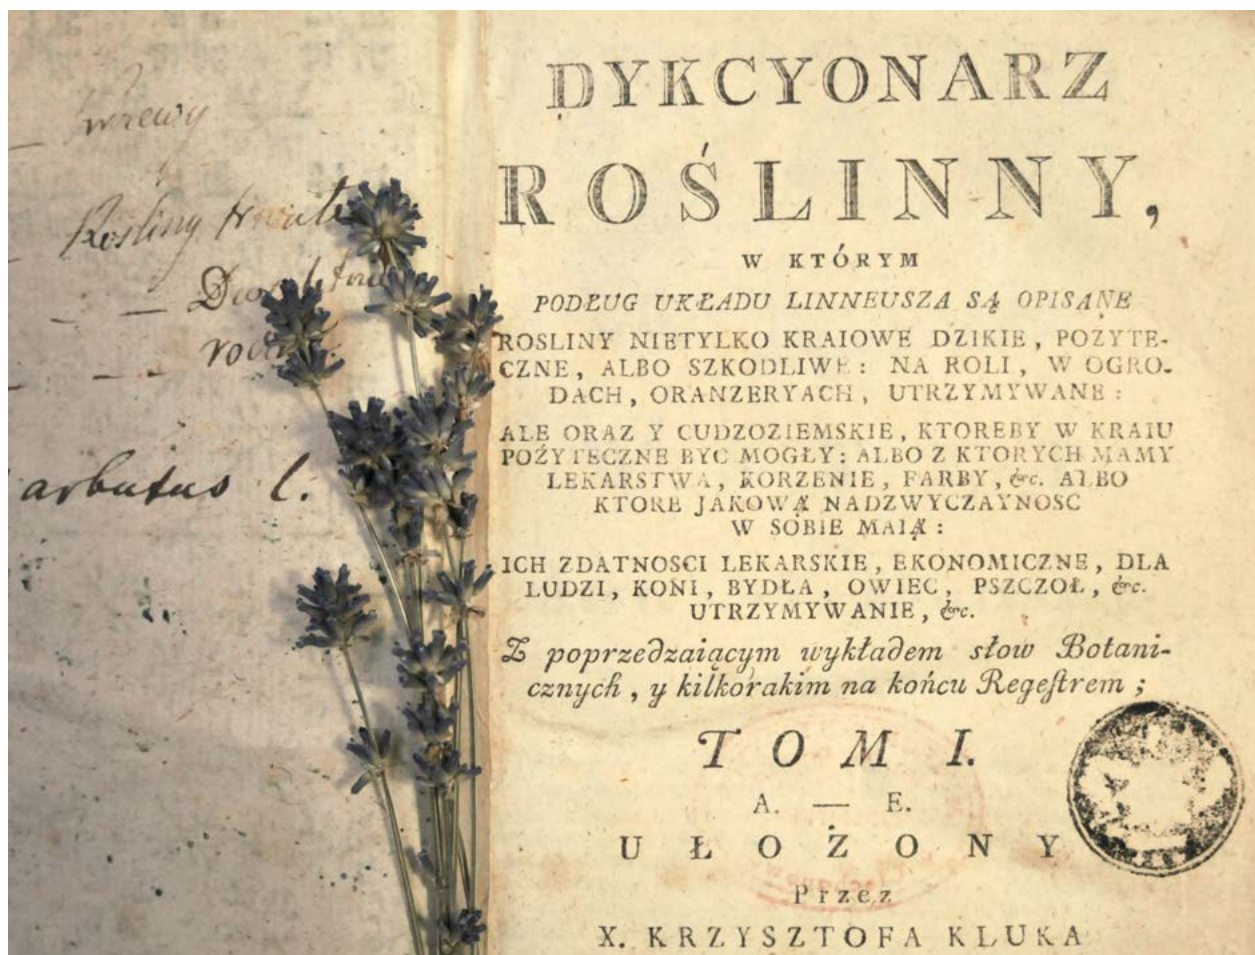 Krzewy
Rośliny trwałe
roczne
arbutus l.
DYKCYONARZ
ROŚLINNY,
W KTÓRYM
PODŁUG UKŁADU LINNEUSZA SĄ OPISANE
ROSLINY NIETYLKO KRAIOWE DZIKIE, POZYTE-
CZNE, ALBO SZKODLIWE: NA ROLI, W OGRO-
DACH, ORANZERYACH, UTRZYMYWANE:
ALE ORAZ Y CUDZOZIEMSKIE, KTOREBY W KRAIU
POŻYTECZNE BYC MOGŁY: ALBO Z KTORYCH MAMY
LEKARSTWA, KORZENIE, FARBY, &c. ALBO
KTORE JAKOWĄ NADZWYCZAYNOSC
W SOBIE MAIĄ:
ICH ZDATNOSCI LEKARSKIE, EKONOMICZNE, DLA
LUDZI, KONI, BYDŁA, OWIEC, PSZCZOŁ, &c.
UTRZYMYWANIE, &c.
Z poprzedzaiącym wykładem słow Botani-
cznych, y kilkorakim na końcu Regeſtrem;
TOM I.
A. — E.
UŁOŻONY
Przez
X. KRZYSZTOFA KLUKA